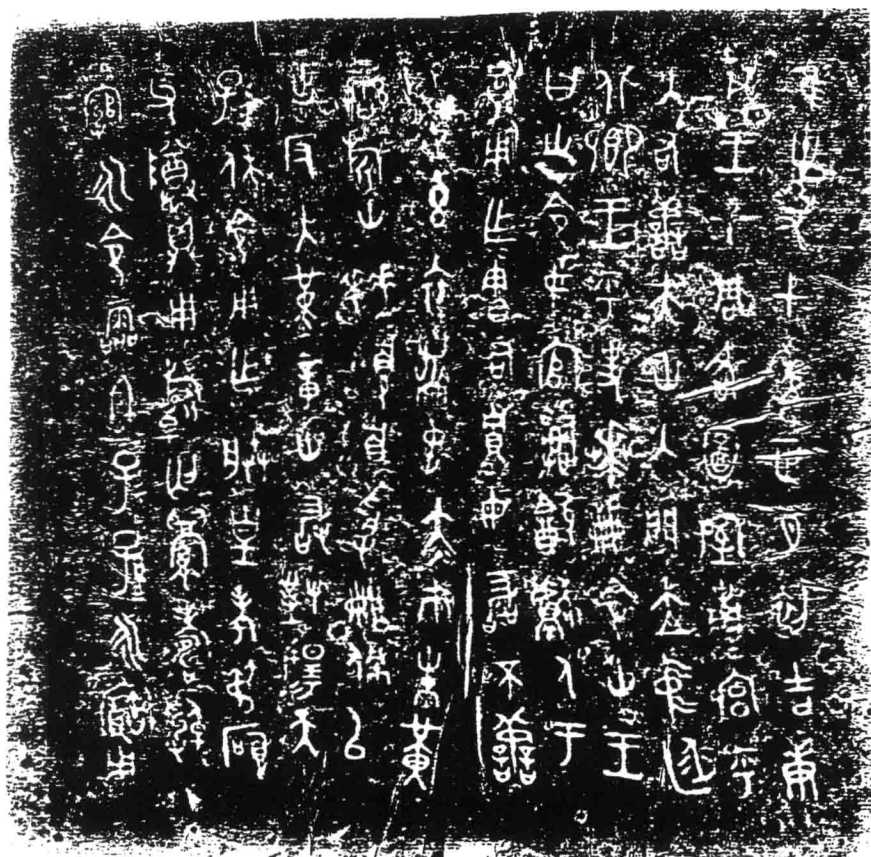 隹卅又七年正月初吉庚
戌王才周各圖室南宮乎
入右善夫山入門立中廷
北卿王乎史𠦪冊令山王
曰山令女官𤔲飲獻人于
用乍憲司貯毋敢不善
易女玄衣黹屯赤巿朱黃
䜌旂山拜𩒨首受冊佩以
出反入堇章山敢對揚天
子休令用乍朕皇考叔碩
父尊鼎用祈匄眉壽綽
綰永令霝冬子=孫=永寶用